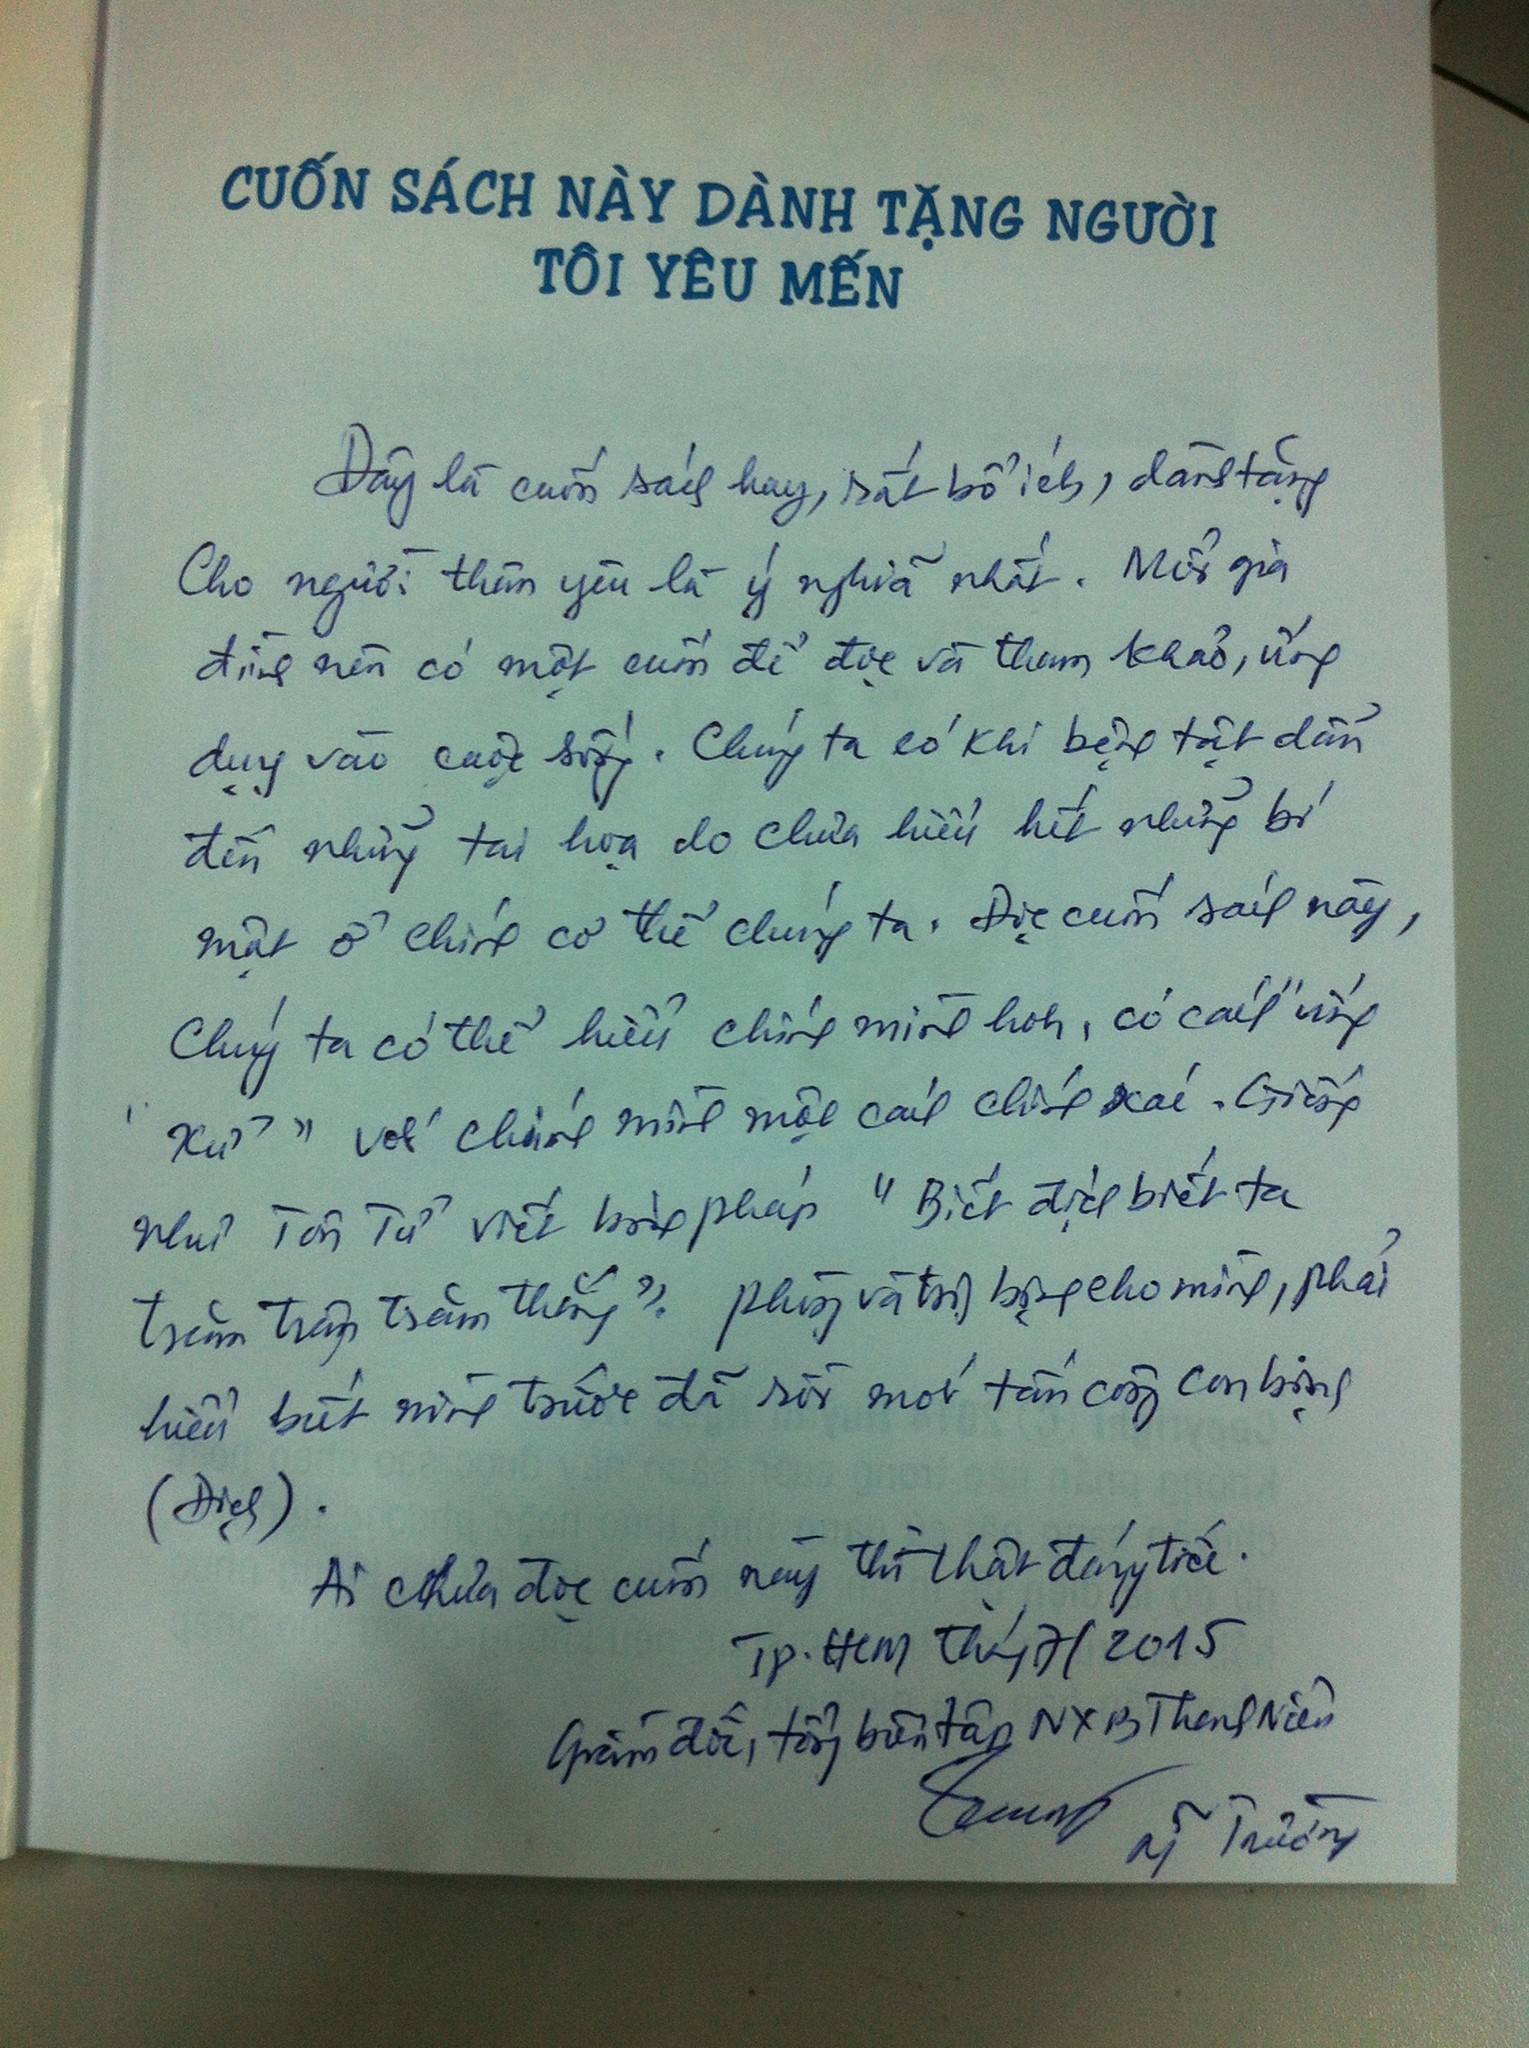 CUỐN SÁCH NÀY DÀNH TẶNG NGƯỜI
TÔI YÊU MẾN
Đây là cuốn sách hay, rất bổ ích, dành tặng
Cho người thân yêu là ý nghĩa nhất. Mỗi gia
đình nên có một cuốn để đọc và tham khảo, ứng
dụng vào cuộc sống. Chúng ta có khi bệnh tật dẫn
đến những tai họa do chưa hiểu hết những bí
mật ở chính cơ thể chúng ta. Đọc cuốn sách này,
Chúng ta có thể hiểu chính mình hơn, có cách "ứng
"xử" với chính mình một cách chính xác. Giống
như Tôn Tử viết binh pháp "Biết địch biết ta
trăm trận trăm thắng". phòng và trị bệnh cho mình, phải
hiểu biết mình trước đã rồi mới tấn công con bệnh
(Địch).
Ai chưa đọc cuốn này thì thật đáng tiếc.
Tp. HCM tháng 7/2015
Giám đốc, tổng biên tập NXB Thanh Niên
Trường